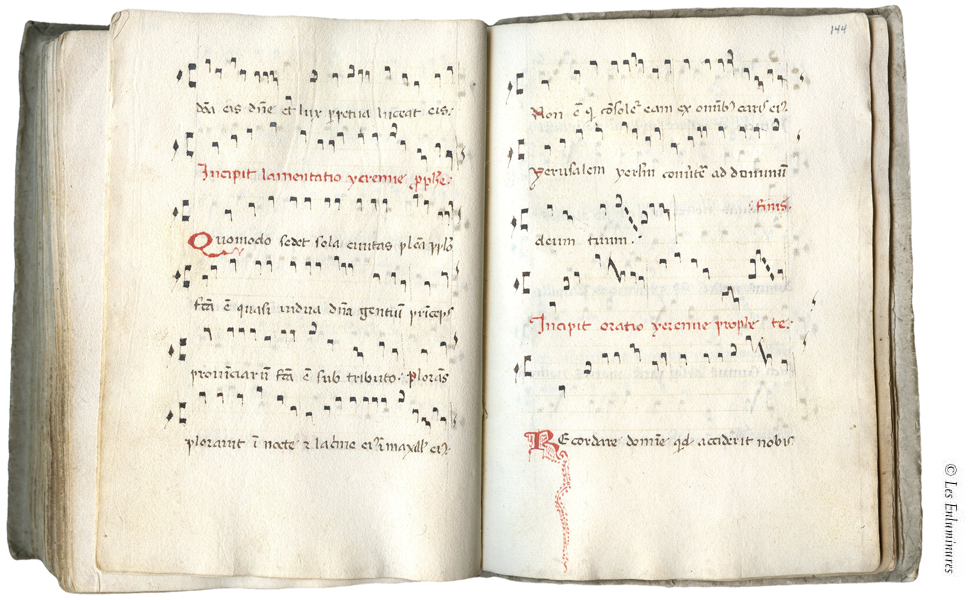 dōa eis dn̄e et lux ꝑpetua luceat eis.
Incipit lamentatio yeremie ꝓph̄e.
Quomodo sedet sola ciuitas plēa ppl̄o
fc̄a ē quasi uidua dn̄a gentiū prīceps
prouīciarū fc̄a ē sub tributo. Plorās
plorauit ī nocte ⁊ lac̄me eiꝰ ī maxill̄ eiꝰ.
144
Non ē q̇ cōsolet᷑ eam ex omībꝰ caris eiꝰ.
Yerusalem yerl̄m cōuert̄e ad dominū
finis.
deum tuum.
Incipit oratio yeremie prophe te.
REcordare domīe qd̄ acciderit nobis
© Les Enluminures